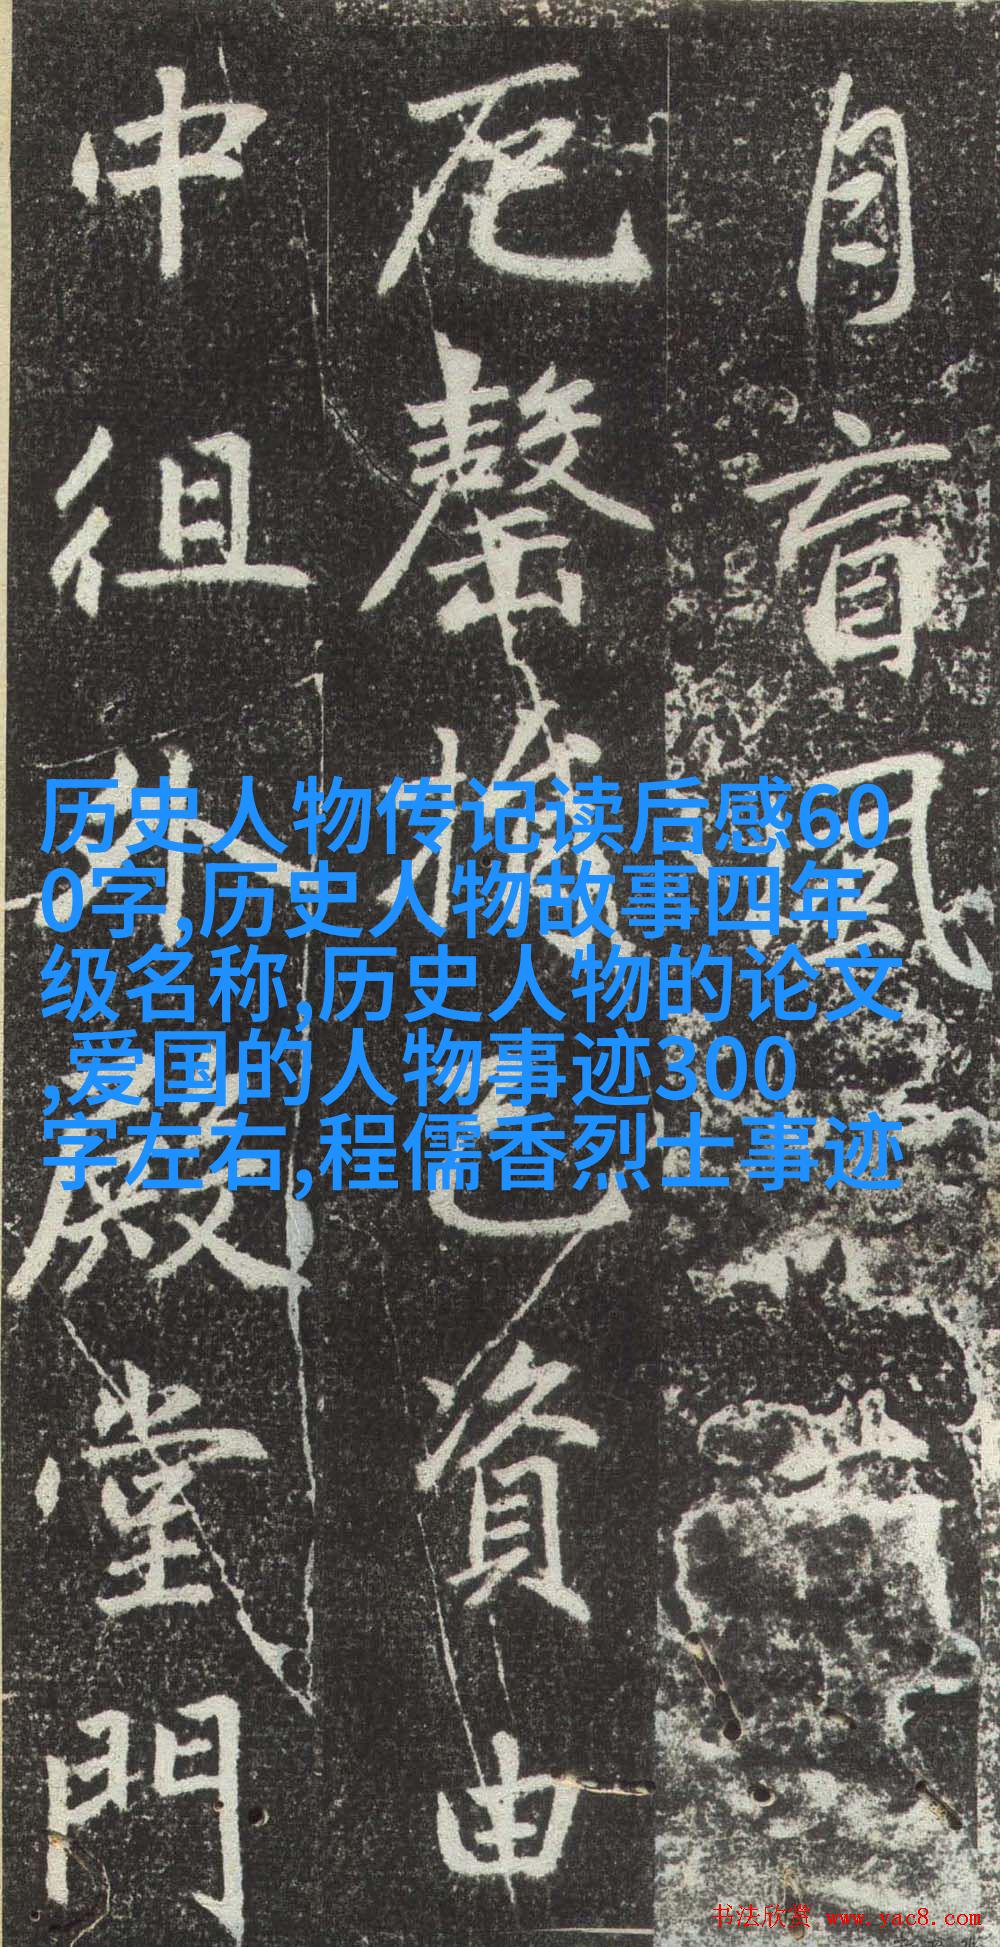 盲風
厄罄資由
中徂外殿堂門
历史人物传记读后感60
0字,历史人物故事四年
级名称,历史人物的论文
,爱国的人物事迹300
字左右,程儒香烈士事迹
书法欣赏 www.yac8.com